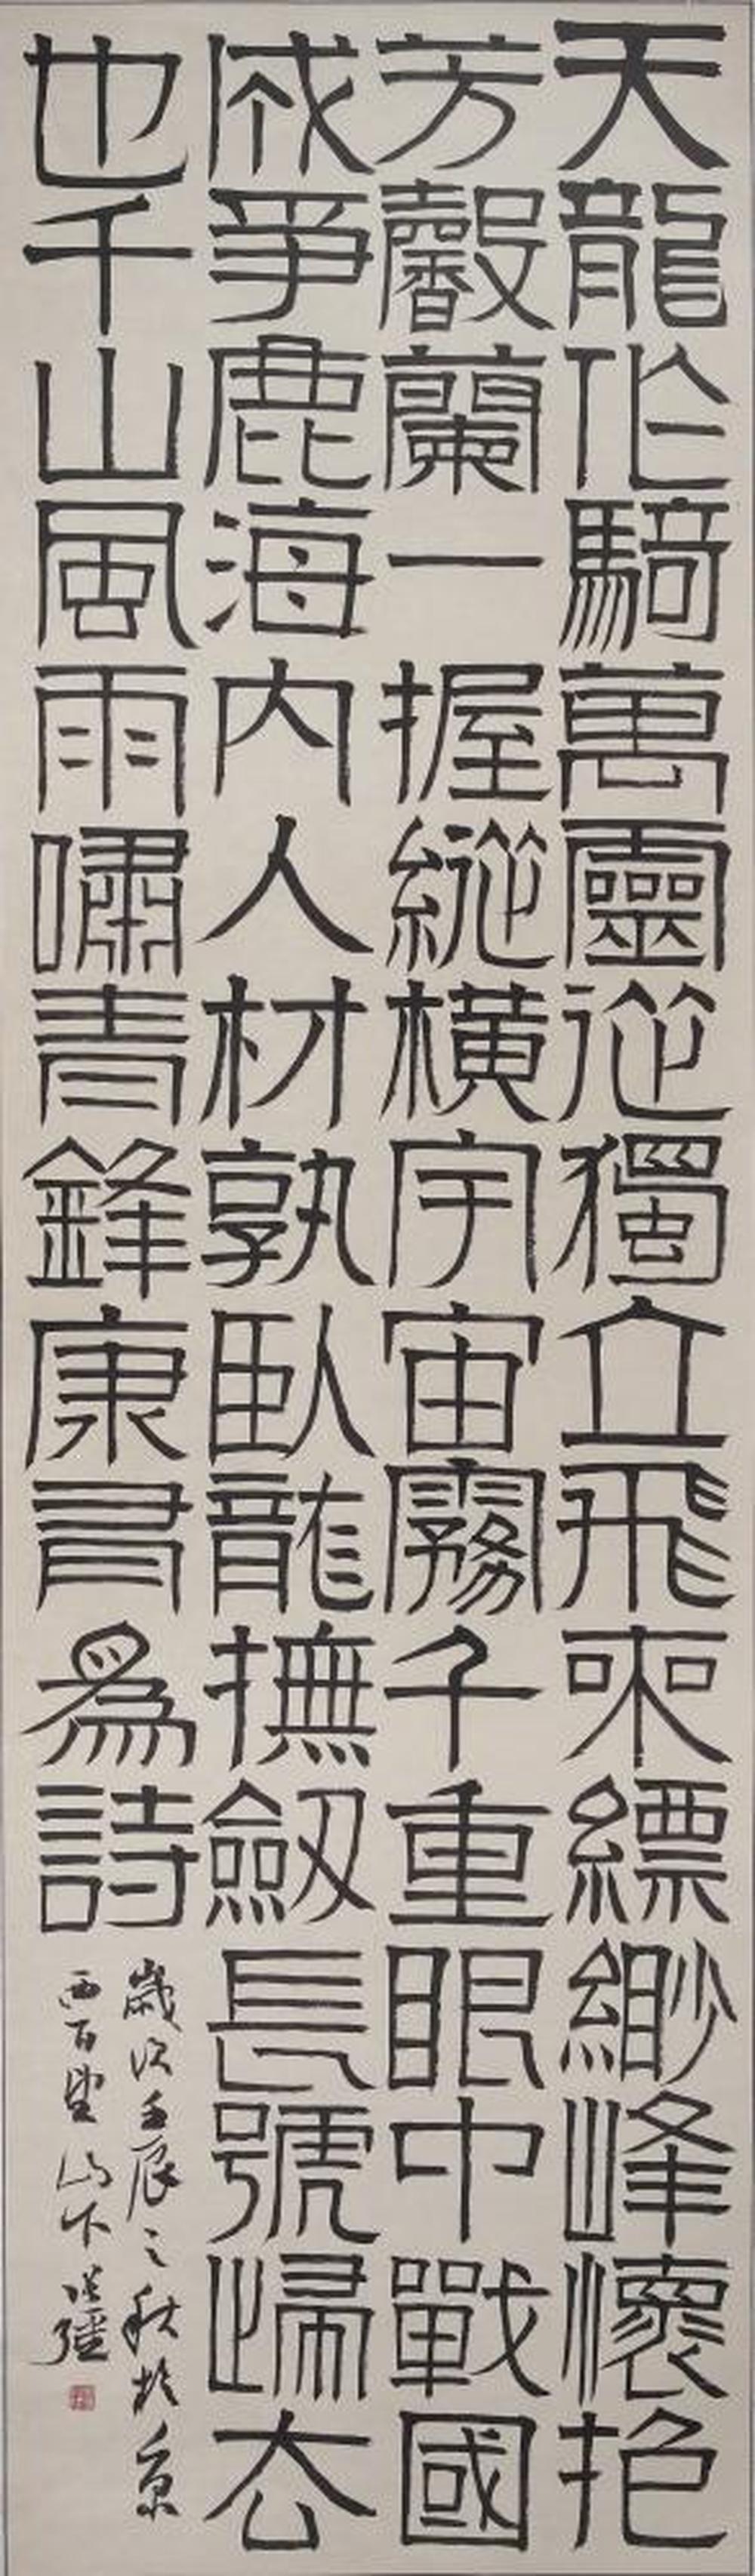 天龍作騎萬靈從獨立飛來縹緲峰懷抱
芳馨蘭一握縱橫宇宙霧千重眼中戰國
成爭鹿海內人材孰臥龍撫劒長號歸去
也千山風雨嘯青鋒康有爲詩
歲次壬辰之秋於京
西百望山下